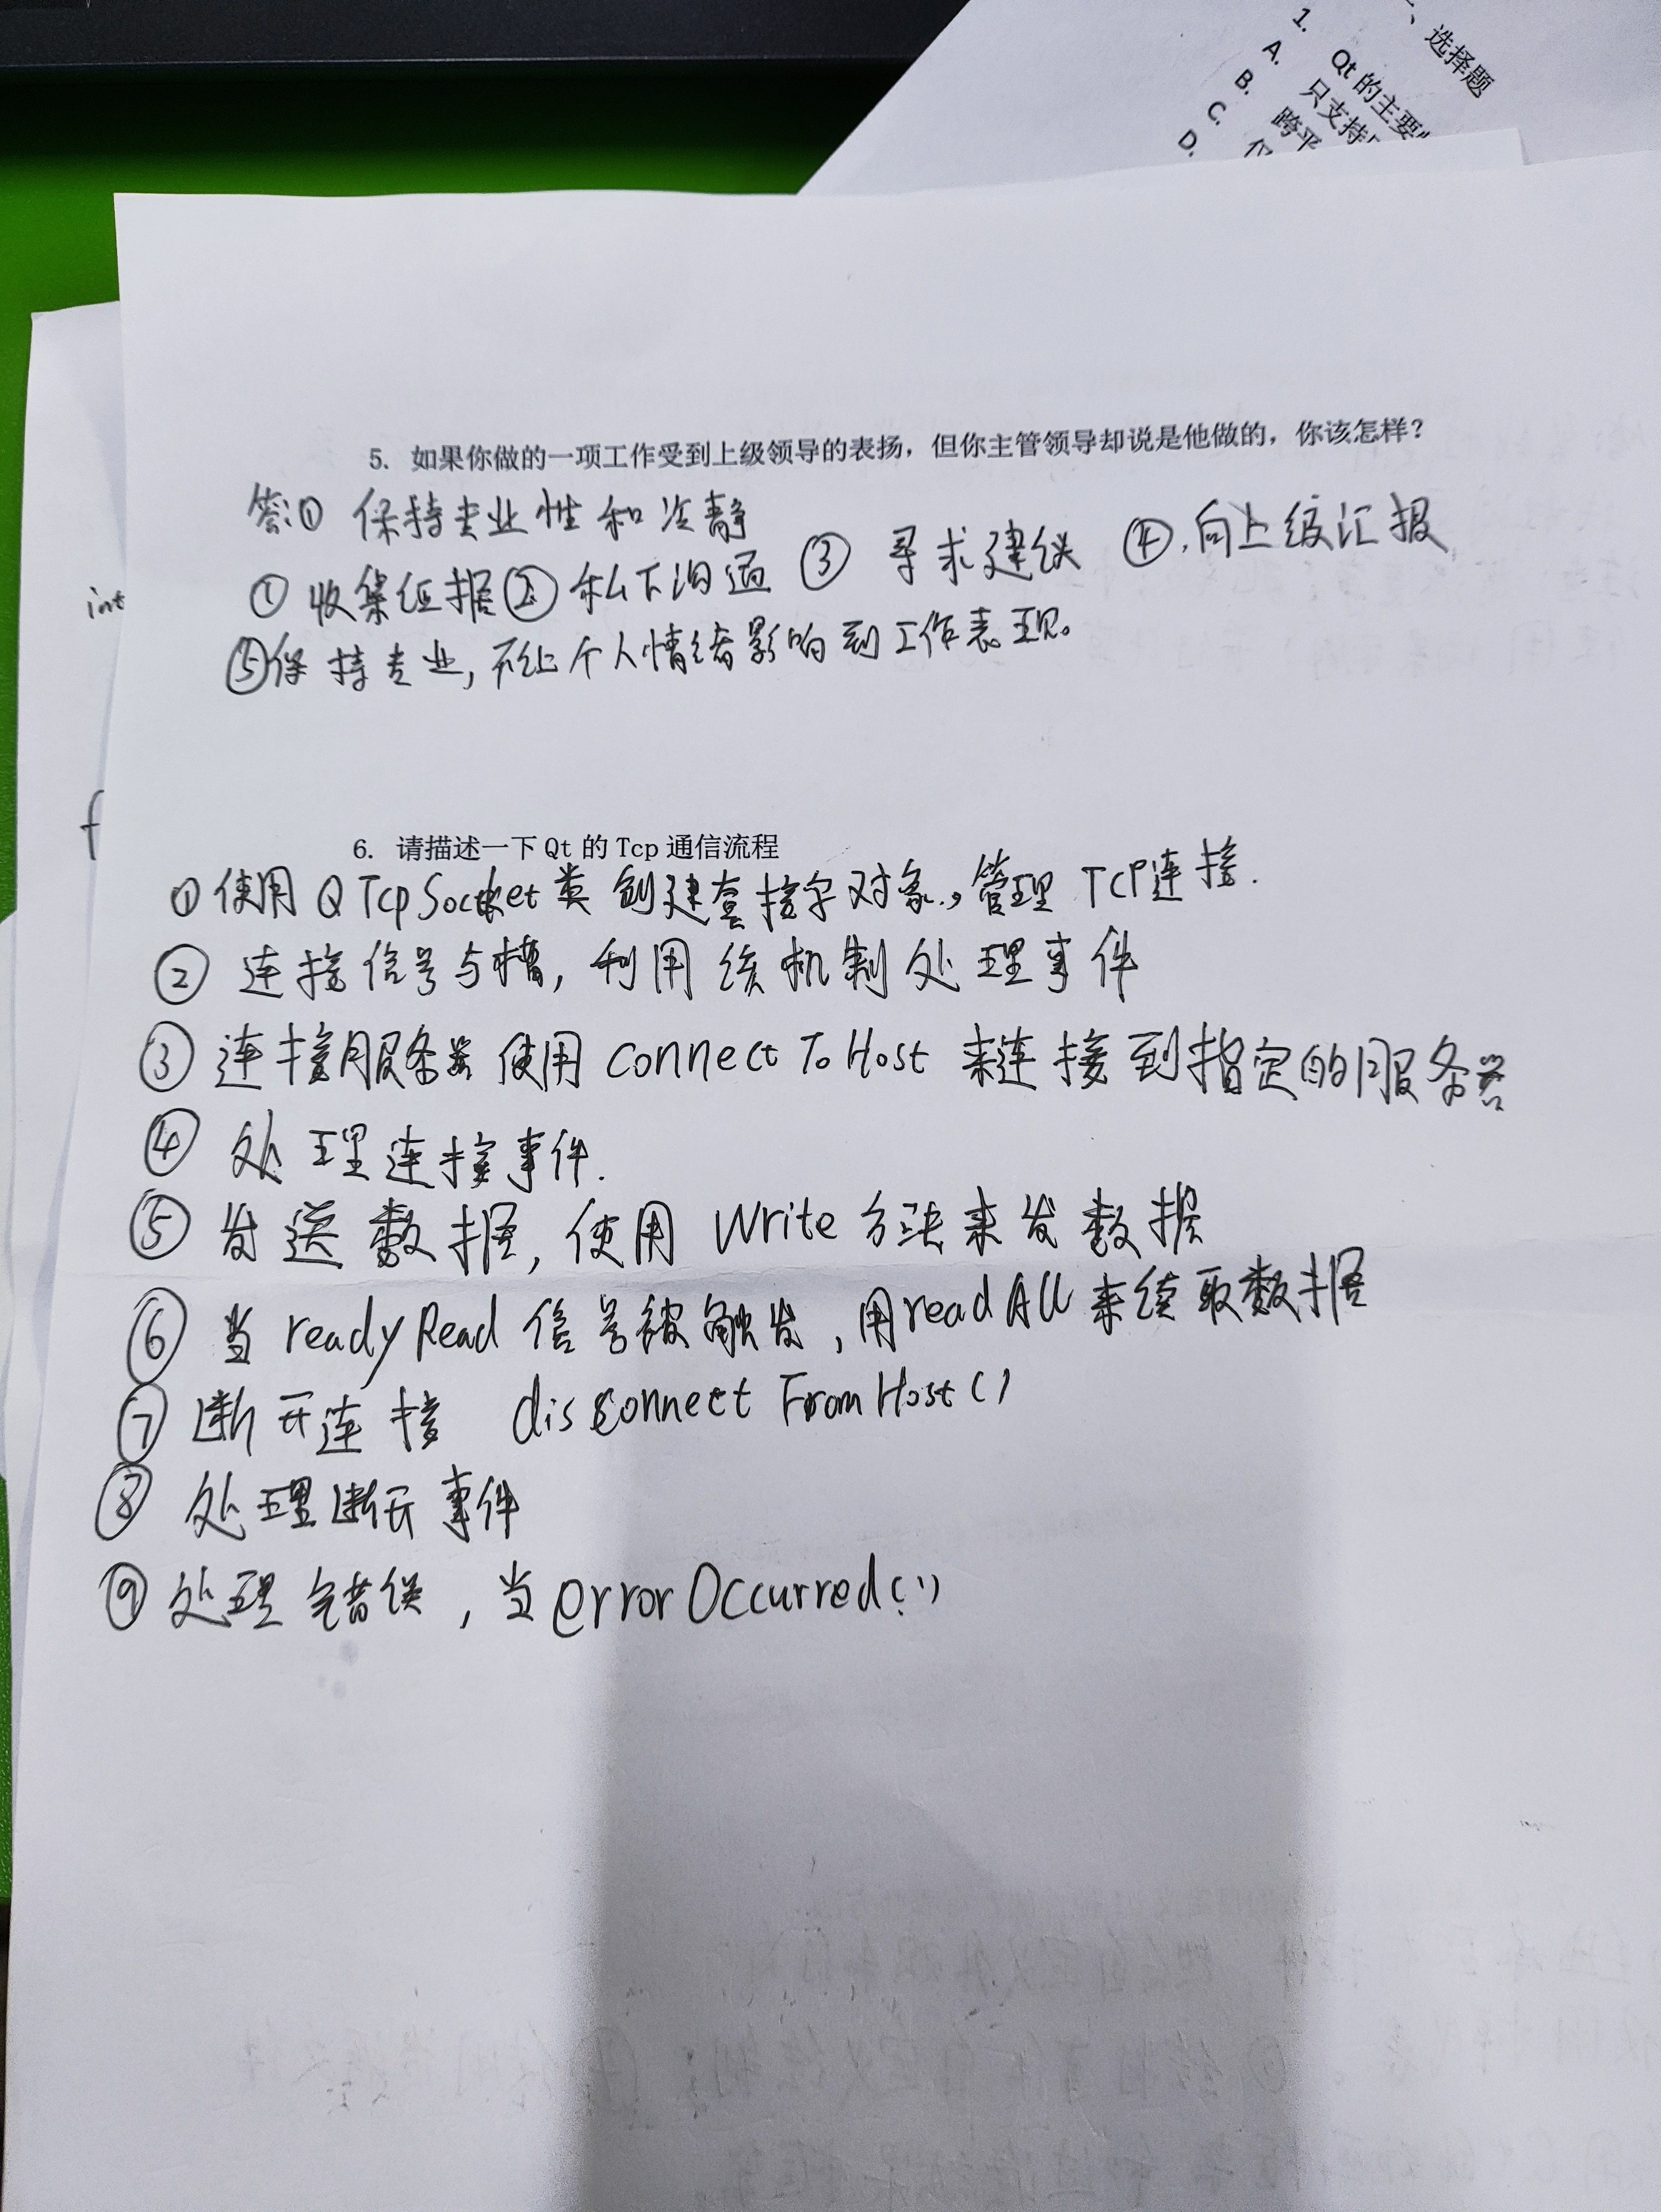 、选择题
1. Qt的主要
A. 只支持
B. 跨平
C.
D.
5. 如果你做的一项工作受到上级领导的表扬，但你主管领导却说是他做的，你该怎样？
答:① 保持专业性和冷静
① 收集证据② 私下沟通 ③ 寻求建议 ④.向上级汇报
⑤保持专业,不让个人情绪影响到工作表现。
int
f
6. 请描述一下Qt的Tcp通信流程
①使用QTcpSocket类创建套接字对象,管理TCP连接.
② 连接信号与槽,利用 机制处理事件
③ 连接服务器 使用connectToHost 来连接到指定的服务器
④ 处理连接事件.
⑤ 发送数据,使用 Write方法来发数据
⑥ 当readyRead信号被触发,用readAll来读取数据
⑦ 断开连接 disconnectFromHost()
⑧ 处理断开事件
⑨ 处理错误,当errorOccurred()